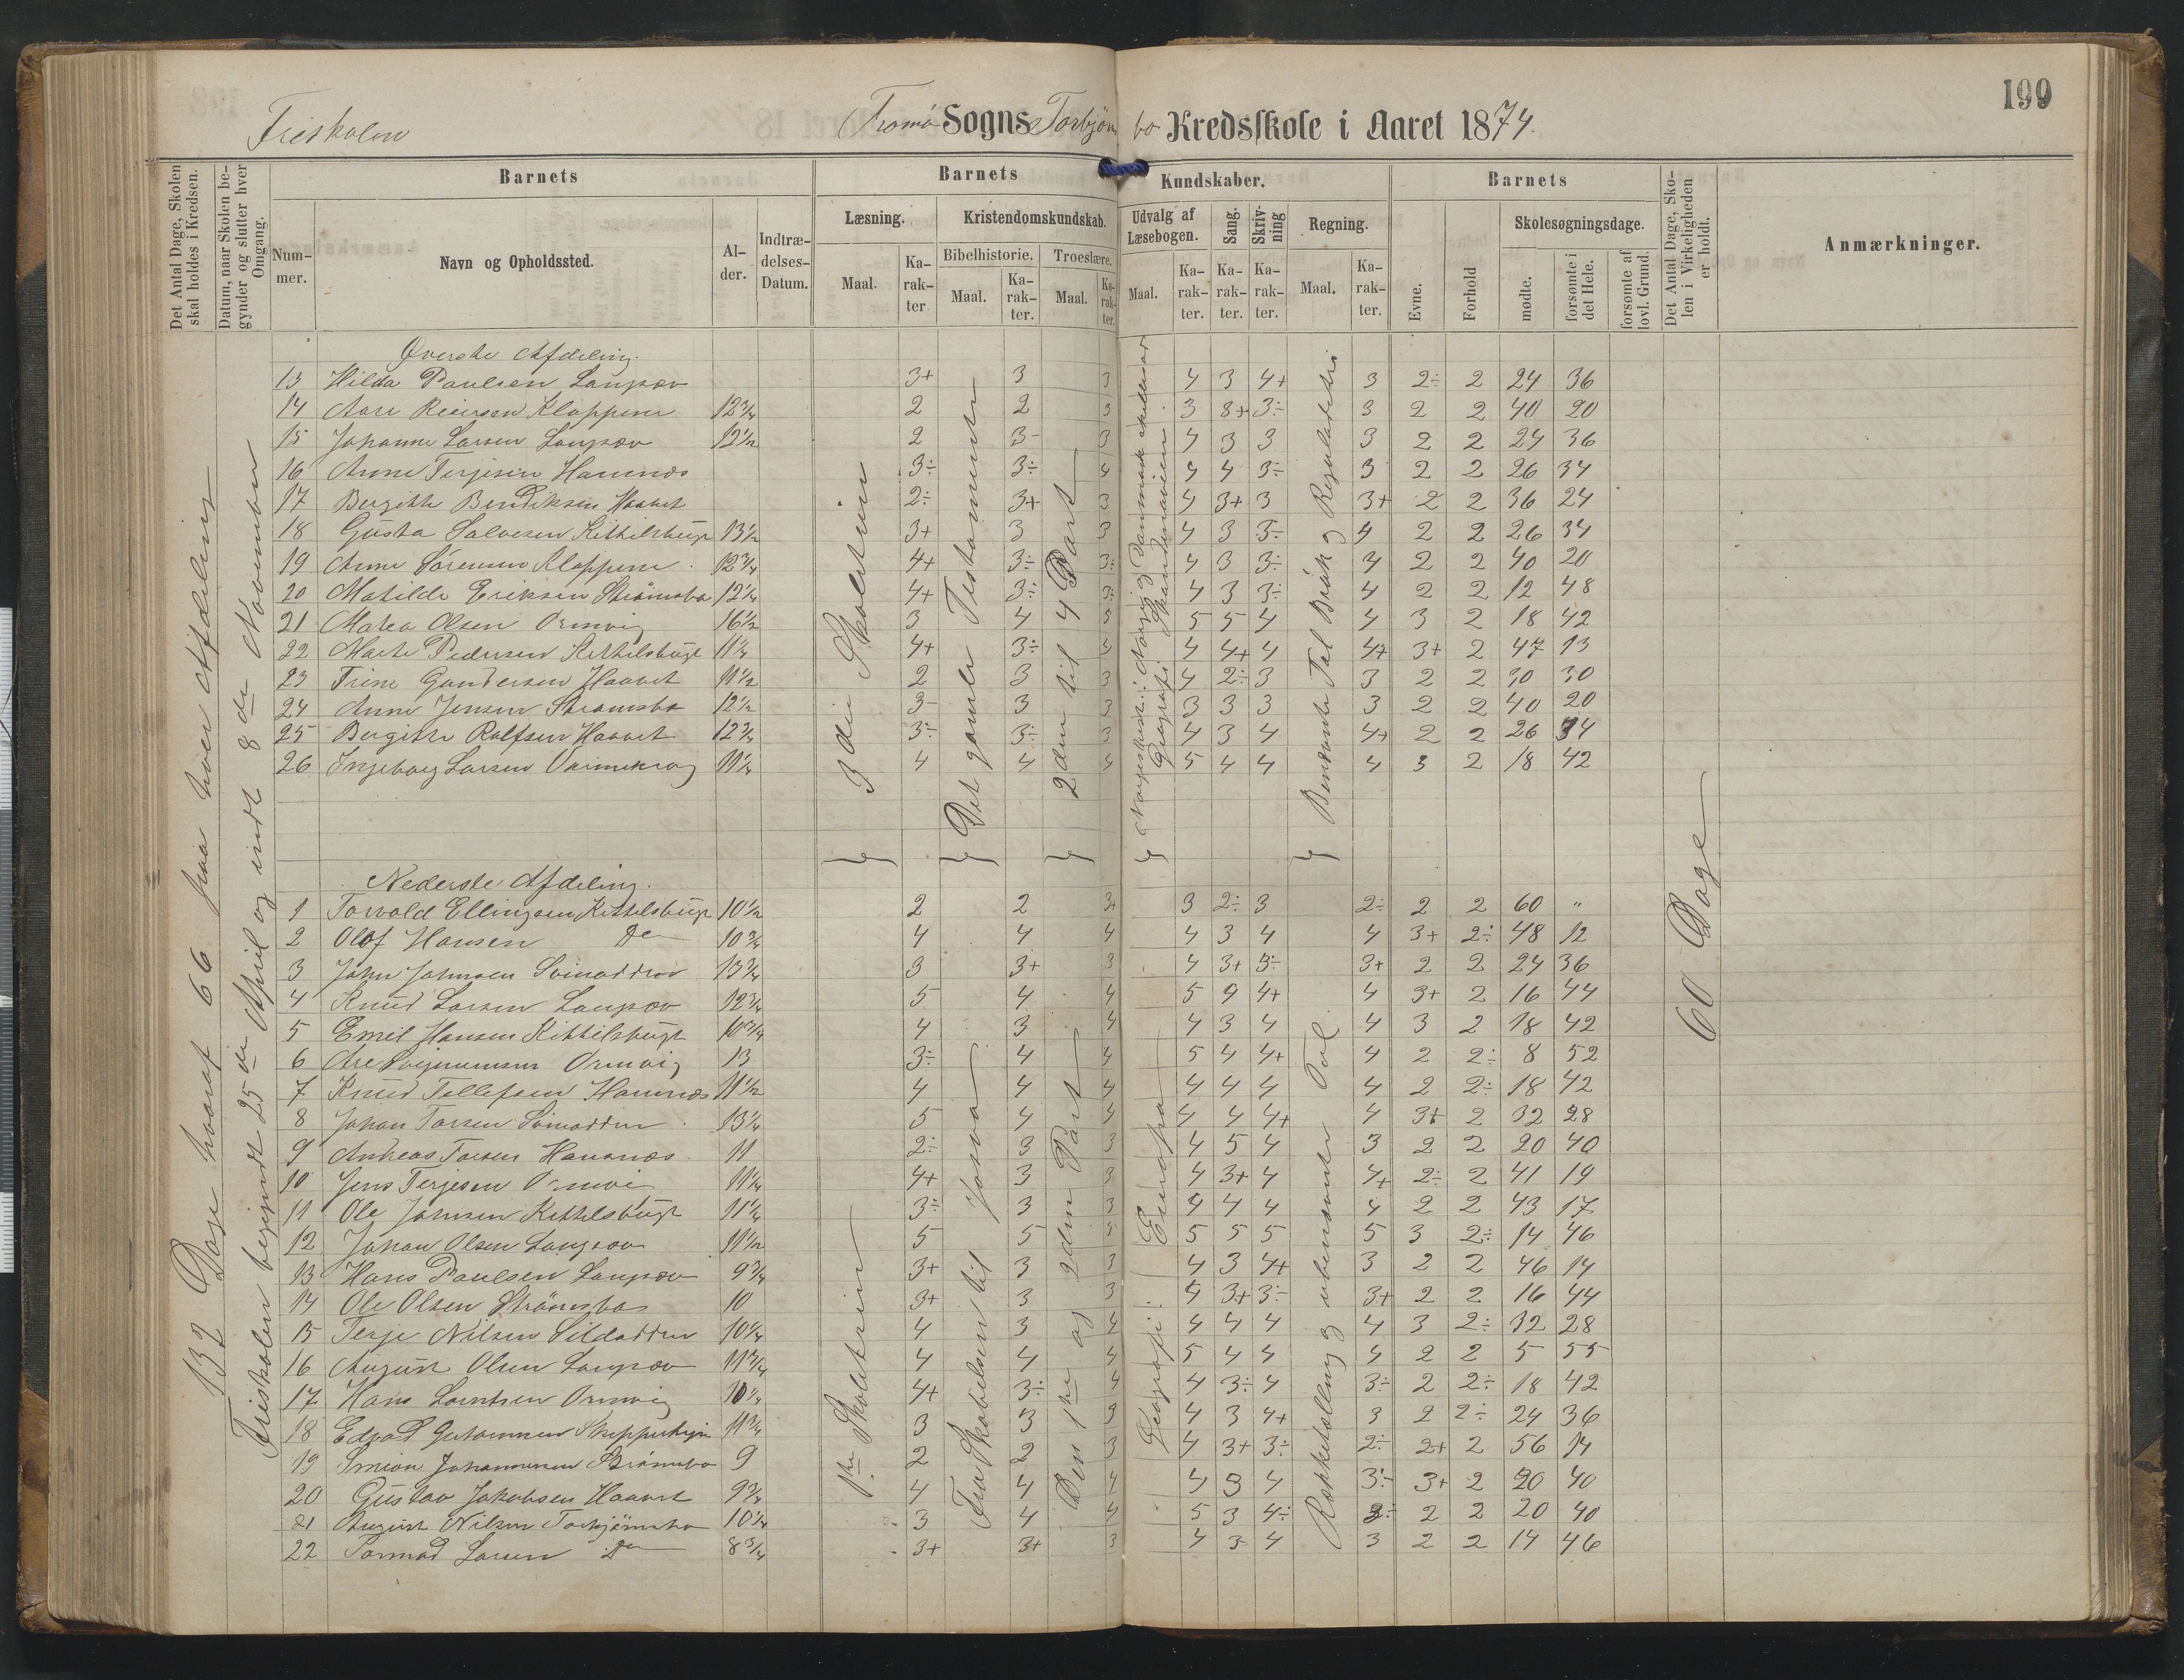 199
Friskolen Tromø Sogns Torbjörnsbo Kredsskole i Aaret 1874.
Det Antal Dage, Skolen skal holdes i Kredsen.
Datum, naar Skolen begynder og slutter hver Omgang.
Barnets
Nummer.
Navn og Opholdssted.
Alder.
Indtrædelses-Datum.
Barnets Kundskaber.
Læsning.
Maal.
Karakter.
Kristendomskundskab.
Bibelhistorie.
Maal.
Karakter.
Troeslære.
Maal.
Karakter.
Udvalg af Læsebogen.
Maal.
Karakter.
Sang.
Karakter.
Skrivning
Karakter.
Regning.
Maal.
Karakter.
Barnets
Evne.
Forhold
Skolesøgningsdage.
mødte.
forsømte i det Hele.
forsømte af lovl. Grund.
Det Antal Dage, Skolen i Virkeligheden er holdt.
Anmærkninger.
132 Dage hvoraf 66 paa hver Afdeling
Friskolen begyndt 25de April og endt 8de November
Øverste Afdeling.
13 Hilda Paulsen Langsæv 3+ 3 3 4 3 4+ 3 2÷ 2 24 36
14 Aase Reiersen Kloppene 12 3/4 2 2 3 3 3+ 3÷ 3 2 2 40 20
15 Johanne Larsen Langsæv 12 1/2 2 3- 3 4 3 3 3 2 2 24 36
16 Anne Terjesen Havnnæs 3÷ 3÷ 4 4 4 3÷ 3 2 2 26 34
17 Bergitte Bendiksen Haavet 2÷ 3+ 3 4 3+ 3 3+ 2 2 36 24
18 Gusta Salvesen Kittelsbugt 13 1/2 3+ 3 3 4 3 3÷ 4 2 2 26 34
19 Anne Sørensen Kloppene 12 3/4 4+ 3÷ 3÷ 4 3 3÷ 4 2 2 40 20
20 Matilde Eriksen Strömsbo 12 1/4 4+ 3÷ 3÷ 4 3 3÷ 4 2 2 12 48
21 Maren Olsen Ormvig 16 1/2 3 4 5 5 5 4 4 3 2 18 42
22 Marte Pedersen Kittelsbugt 11 1/4 4+ 3÷ 4 4 4+ 4 4+ 3+ 2 47 13
23 Trine Gundersen Haavet 11 1/2 2 3 3 4 2÷ 3 3 2 2 30 30
24 Anne Jensen Strömsbo 12 1/2 3- 3 3 3 3 3 3 2 2 40 20
25 Bergitte Rolfsen Haavet 12 3/4 3÷ 3÷ 3 4 3 4 4+ 2 2 26 34
26 Ingeborg Larsen 11 1/4 4 4 4 5 4 4 4 3 2 18 42
3die Skoletrin
Det gamle Testamente
2den til 4 Part
Norgeshist. Norge, Danmark
Geografi Skandinavien
Benævnte Tal Brøk og Reguladetri
Nederste Afdeling.
1 Torvald Ellingsen Kittelsbugt 10 1/2 2 2 3+ 3 2÷ 3 2÷ 2 2 60 "
2 Olof Hansen Do 10 3/4 4 4 4 4 3 4 4 3+ 2÷ 48 12
3 John Johnsen Svinodden 13 3/4 3 3+ 3 4 3+ 3÷ 3+ 2 2 24 36
4 Knud Larsen Langsæv 12 3/4 5 4 4 5 4 4+ 4 3+ 2 16 44
5 Emil Hansen Kittelsbugt 10 3/4 4 3 4 4 3 4 4 3 2 18 42
6 Are Ormvig 13 3÷ 4 4 5 4 4+ 4 2 2÷ 8 52
7 Knud Tellefsen Havnnæs 11 1/2 4 4 4 4 4 4 4 2 2÷ 18 42
8 Johan Torsen Svinodden 13 1/4 5 4 4 4 4 4+ 4 3+ 2 32 28
9 Andreas Torsen Havnnæs 11 2÷ 3 3 4 5 4 3 2 2 20 40
10 Jens Terjesen Ormvig 11 1/4 4+ 3 3 4 3+ 4 4+ 2÷ 2 41 19
11 Ole Johnsen Kittelsbugt 11 1/4 3÷ 3 3 4 4 4 4 2 2 43 17
12 Johan Olsen Langsæv 11 1/2 5 5 5 5 5 5 5 3 2÷ 14 46
13 Hans Paulsen Langsæv 9 3/4 3+ 3 3 4 3 4+ 3 2 2 46 14
14 Ole Olsen Strömsbo 10 3+ 3 3 4 3+ 3÷ 3+ 2 2 16 44
15 Terje Nilsen Sildodden 10 1/4 4 3 4 4 4 4 4 3 2÷ 32 28
16 August Olsen Langsæv 11 3/4 4 4 4 5 4 4 4 2 2 5 55
17 Hans Lorntsen Ormvig 10 1/4 4+ 3÷ 4 4 3÷ 4 3÷ 2 2÷ 18 42
18 Edvad 11 3/4 3 3 3 4 3 4+ 3 2 2÷ 24 36
19 Simion Johannesen Strömsbo 9 2 2 3 4 3+ 3÷ 2÷ 2+ 2 56 14
20 Gustav Jakobsen Haavet 9 3/4 4 4 4 4 3 4 3÷ 3+ 2 20 40
21 August Nilsen Torbjörnsbo 10 1/4 3 4 4 5 3 4÷ 3÷ 2 2 20 40
22 Larsen Do 8 3/4 3+ 3+ 3 4 3 4 3 2 2 14 46
1ste Skoletrin
Fra Skabelsen til Josva
Den 1ste og 2den Part
Geografi: Europa
Rækketælling og ubenævnte Tal
60 Dage